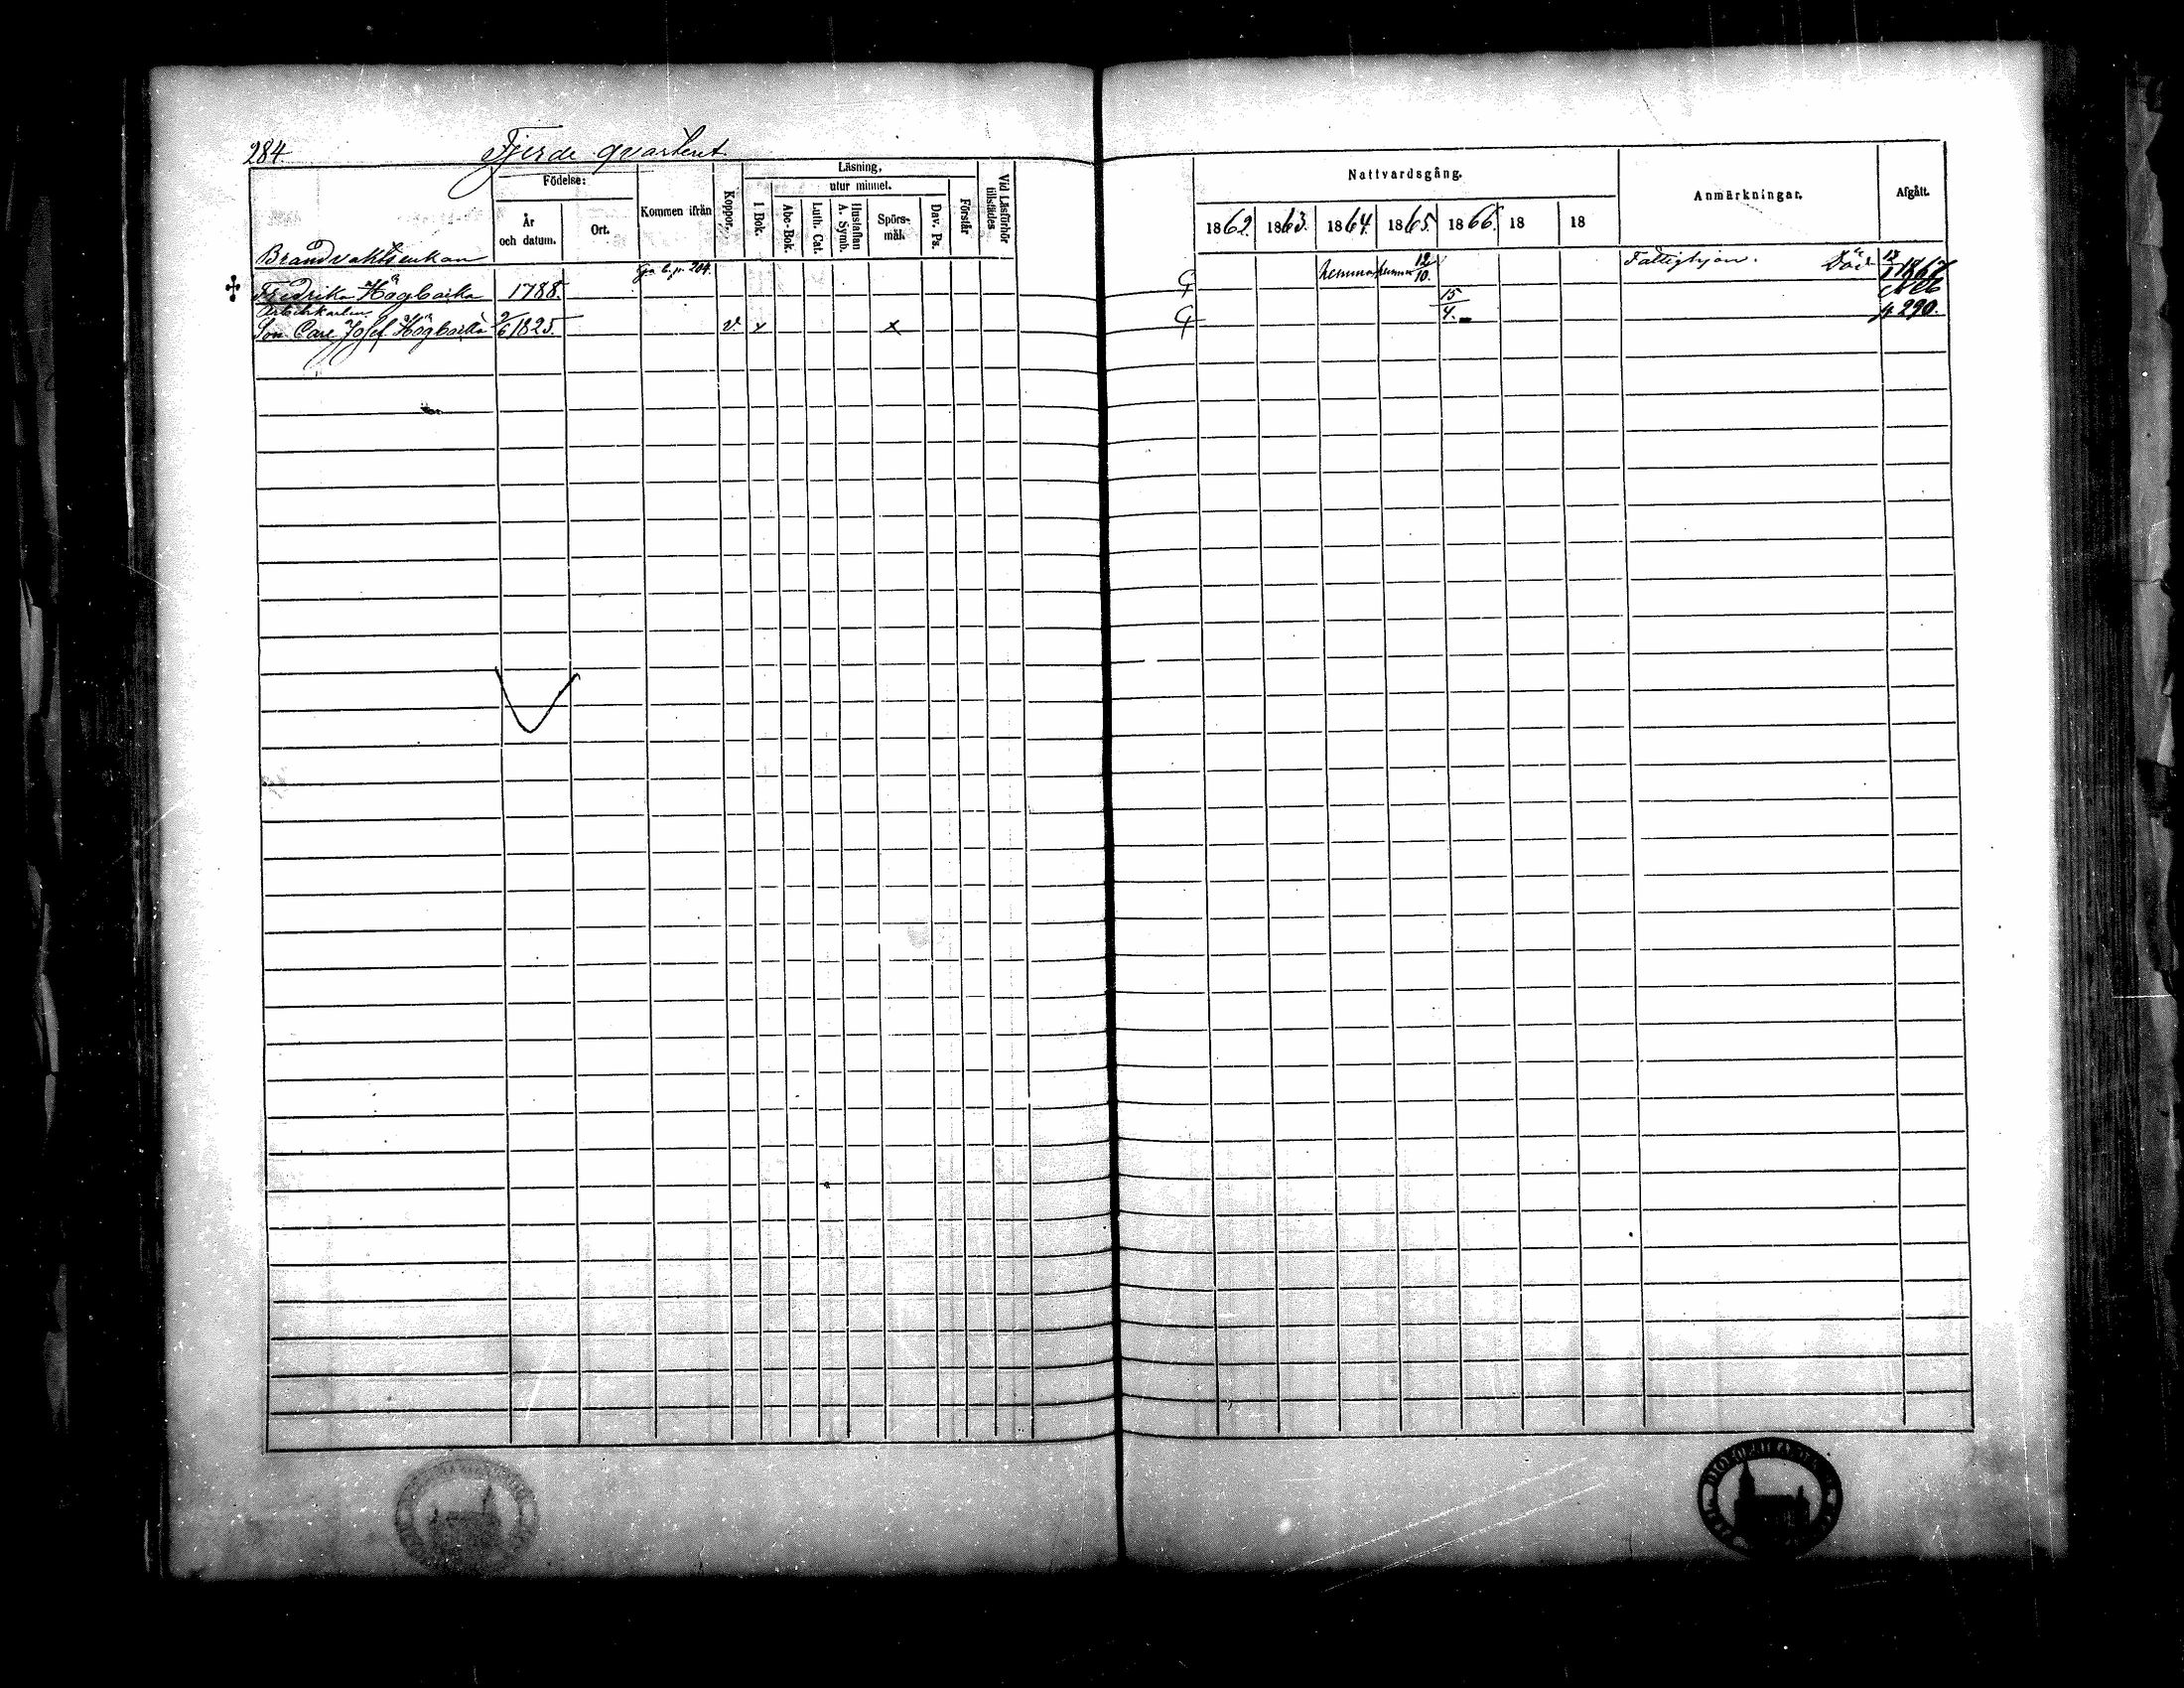 284.
Fjerde quarteret
Födelse:
År
och datum.
Ort.
Kommen ifrån
Koppor.
Läsning,
utur minnet.
I Bok.
Abc-Bok.
Luth. Cat.
Hustaflan
A. Symb.
Spörs-
mål.
Dav. Ps.
Förstår
Vid Läsförhör
tillstädes
Nattvardsgång.
1862.
1863.
1864.
1865.
1866.
18
18
Anmärkningar.
Afgått.
Brandvaktsenkan
Fredrika Högbacka 1788. p. 204. hemma hemma 12/10. Fattighjon. Död 1867
Arbetskarlen
Son Carl Josef Högbacka 2/6 1825. v x x 15/4. p 290.